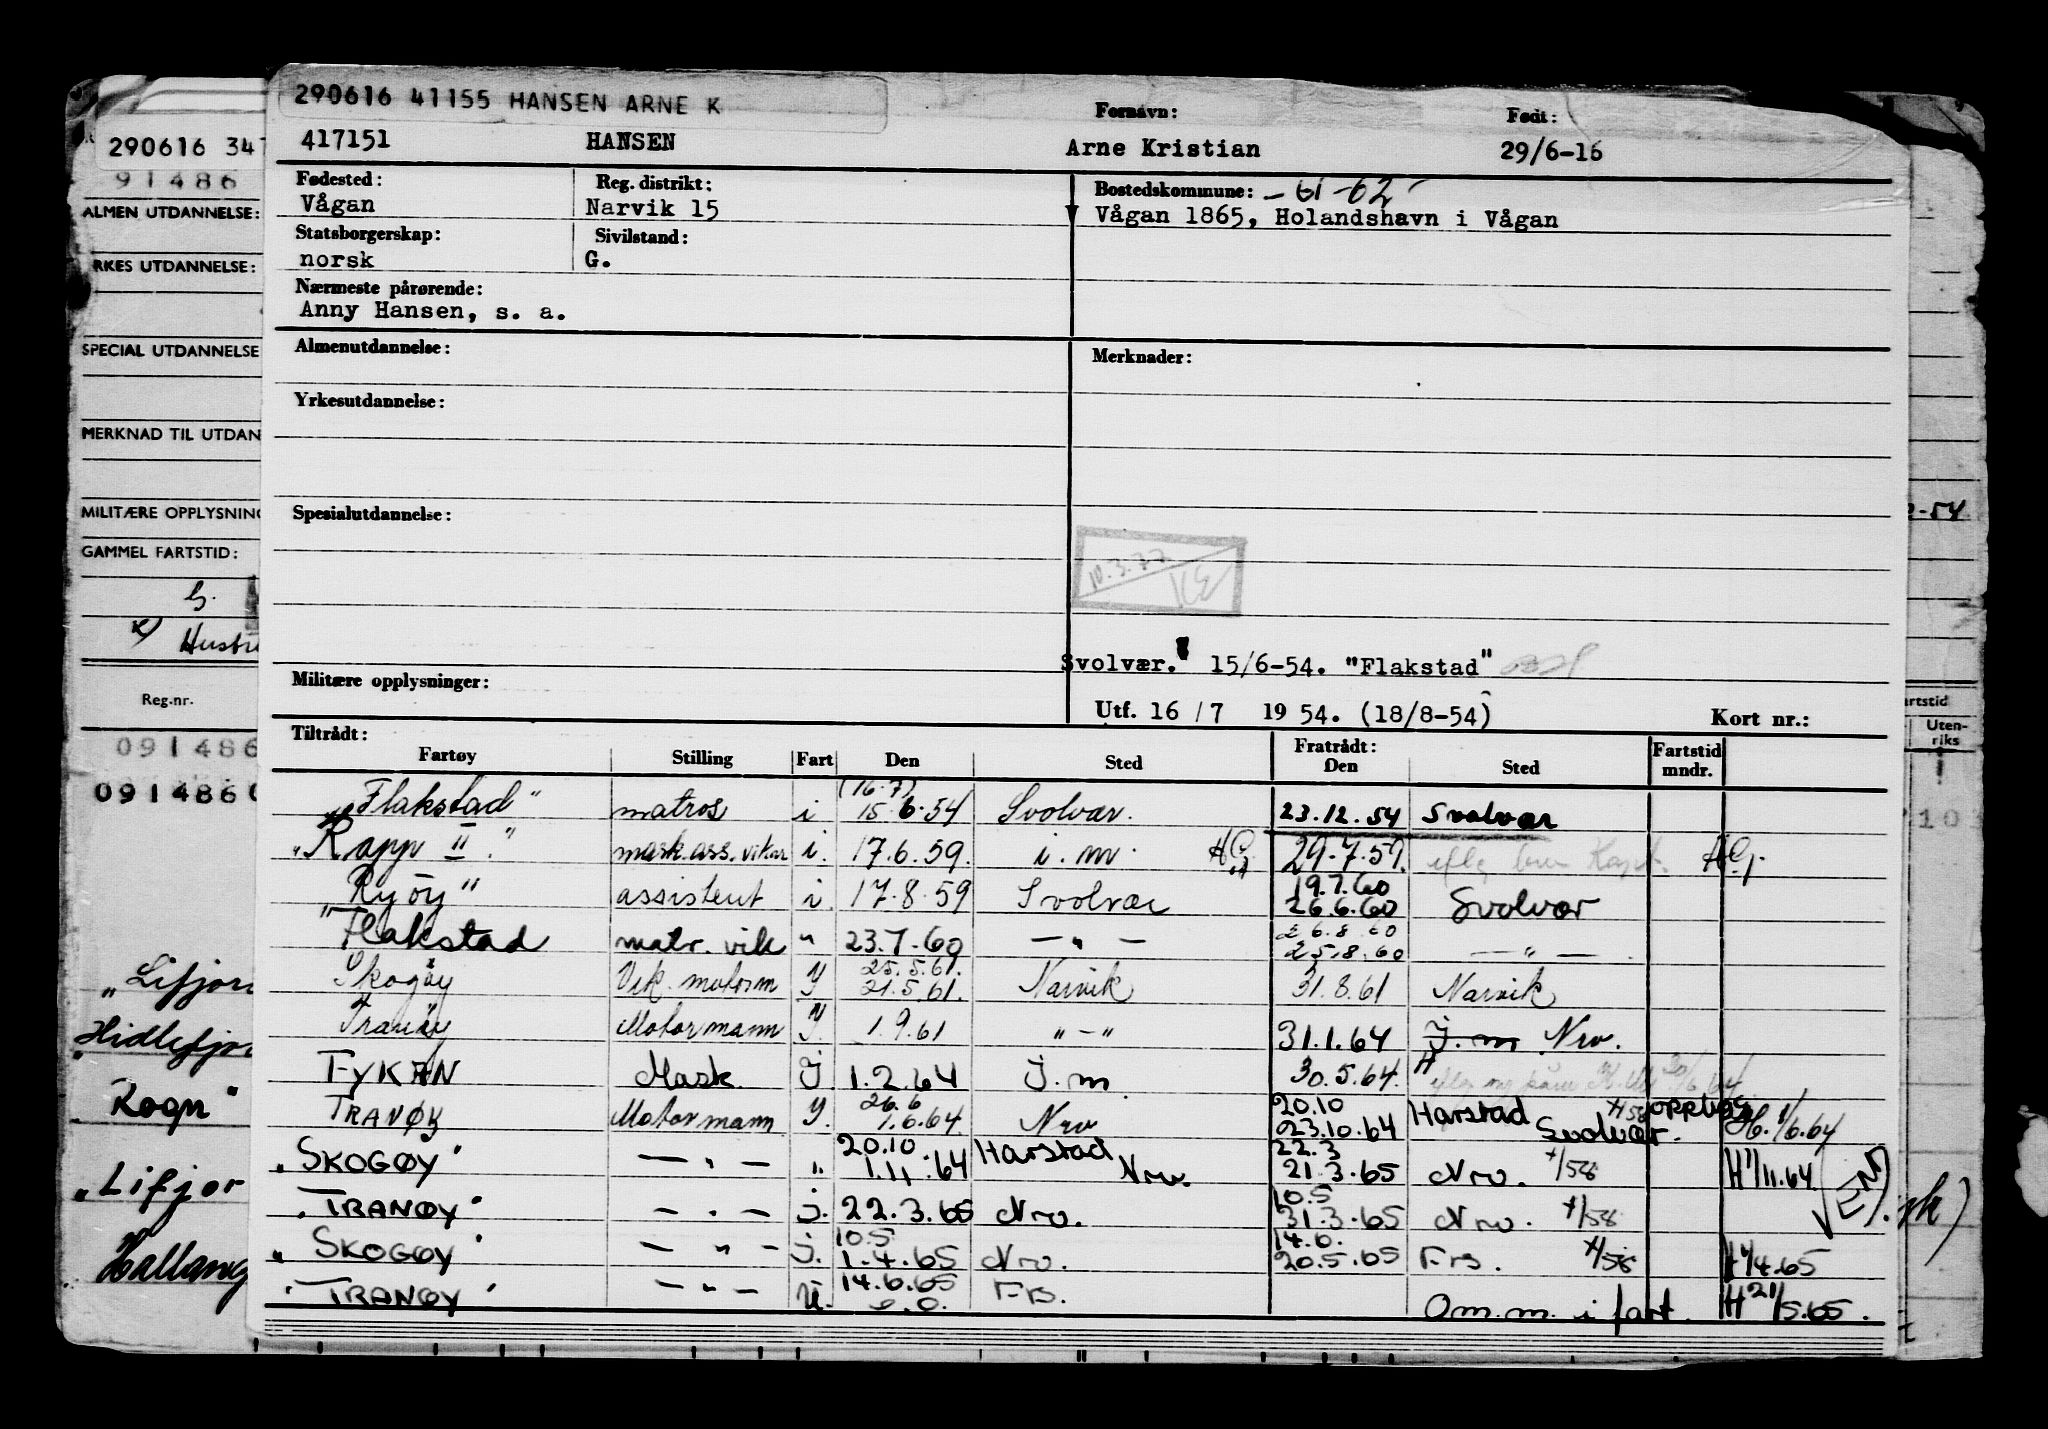 290616 41155 HANSEN ARNE K
417151 HANSEN
Fornavn: Født:
Arne Kristian 29/6-16
290616 341
91486
ALMEN UTDANNELSE:
RKES UTDANNELSE:
SPECIAL UTDANNELSE
MERKNAD TIL UTDAN
MILITÆRE OPPLYSNING
GAMMEL FARTSTID:
G.
x) Hustr
Reg.nr.
091486
091486
"Lifjor
"Hidlefjor
Rogn"
"Lifjor
Hallang
Fødested: Reg. distrikt: Bostedskommune: -61-62-
Vågan Narvik 15 Vågan 1865, Holandshavn i Vågan
Statsborgerskap: Sivilstand:
norsk G.
Nærmeste pårørende:
Anny Hansen, s. a.
Almenutdannelse: Merknader:
Yrkesutdannelse:
Spesialutdannelse:
10.3.77
KE
Svolvær. 15/6-54. "Flakstad"
Militære opplysninger:
Utf. 16/7 1954. (18/8-54) Kort nr.:
Tiltrådt: Fratrådt:
Fartøy Stilling Fart Den Sted Den Sted Fartstid mndr.
"Flakstad" matros i (16.7) 15.6.54 Svolvær. 23.12.54 Svolvær
"Rapp II." mask.ass. vikar i. 17.6.59. i.m. HG 29.7.59. HG.
"Ryøy" assistent i 17.8.59 Svolvær 19.7.60 26.6.60 Svolvær
Flakstad matr. vik " 23.7.60 — " — 26.8.60 25.8.60 — " —
Skogøy Vik. motorm Y 25.5.61. 21.5.61. Narvik 31.8.61 Narvik
Tranøy Motormann Y. 1.9.61 " - " 31.1.64 J.m Nrv.
TYKAN Mask. J 1.2.64 J.m 30.5.64. H
TRANØY Motormann Y. 26.6 1.6.64. Nrv 20.10 23.10.64 Harstad Svolvær. H58 H. 1/6.64
"SKOGØY" — " — " 20.10 1.11.64 Harstad Nrv. 22.3 21.3.65 Nrv. H/58 H 1/11.64
"TRANØY" — " — j. 22.3.65 Nrv. 10.5 31.3.65 Nrv. H/58
"SKOGØY" — " — j. 10.5 1.4.65 Nrv. 14.6. 20.5.65 Frs. H/58 H 1/4.65
"TRANØY" — " — U. 14.6.65 Frs. Om.m. i fart. H 21/5.65.
-54
artstid
Uten-
riks
10